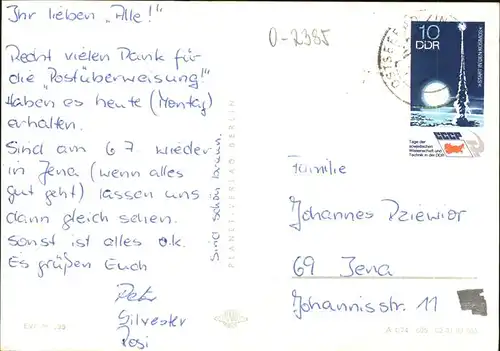 Ihr lieben "Alle!"
Recht vielen Dank für
die "Postüberweisung!"
Haben es heute (Montag)
erhalten.
Sind am 6 7 wieder
in Jena (wenn alles
gut geht) lassen uns
dann gleich sehen.
Sonst ist alles o.k.
Es grüßen Euch
Peter
Silvester
Rosi
Sind schön braun.
PLANET-VERLAG BERLIN
0-2385
OSTSEEBAD
10
DDR
»START IN DEN KOSMOS«
CCCP
Tage der
sowjetischen
Wissenschaft und
Technik in der DDR
Familie
Johannes Dziewior
69 Jena
Johannisstr. 11